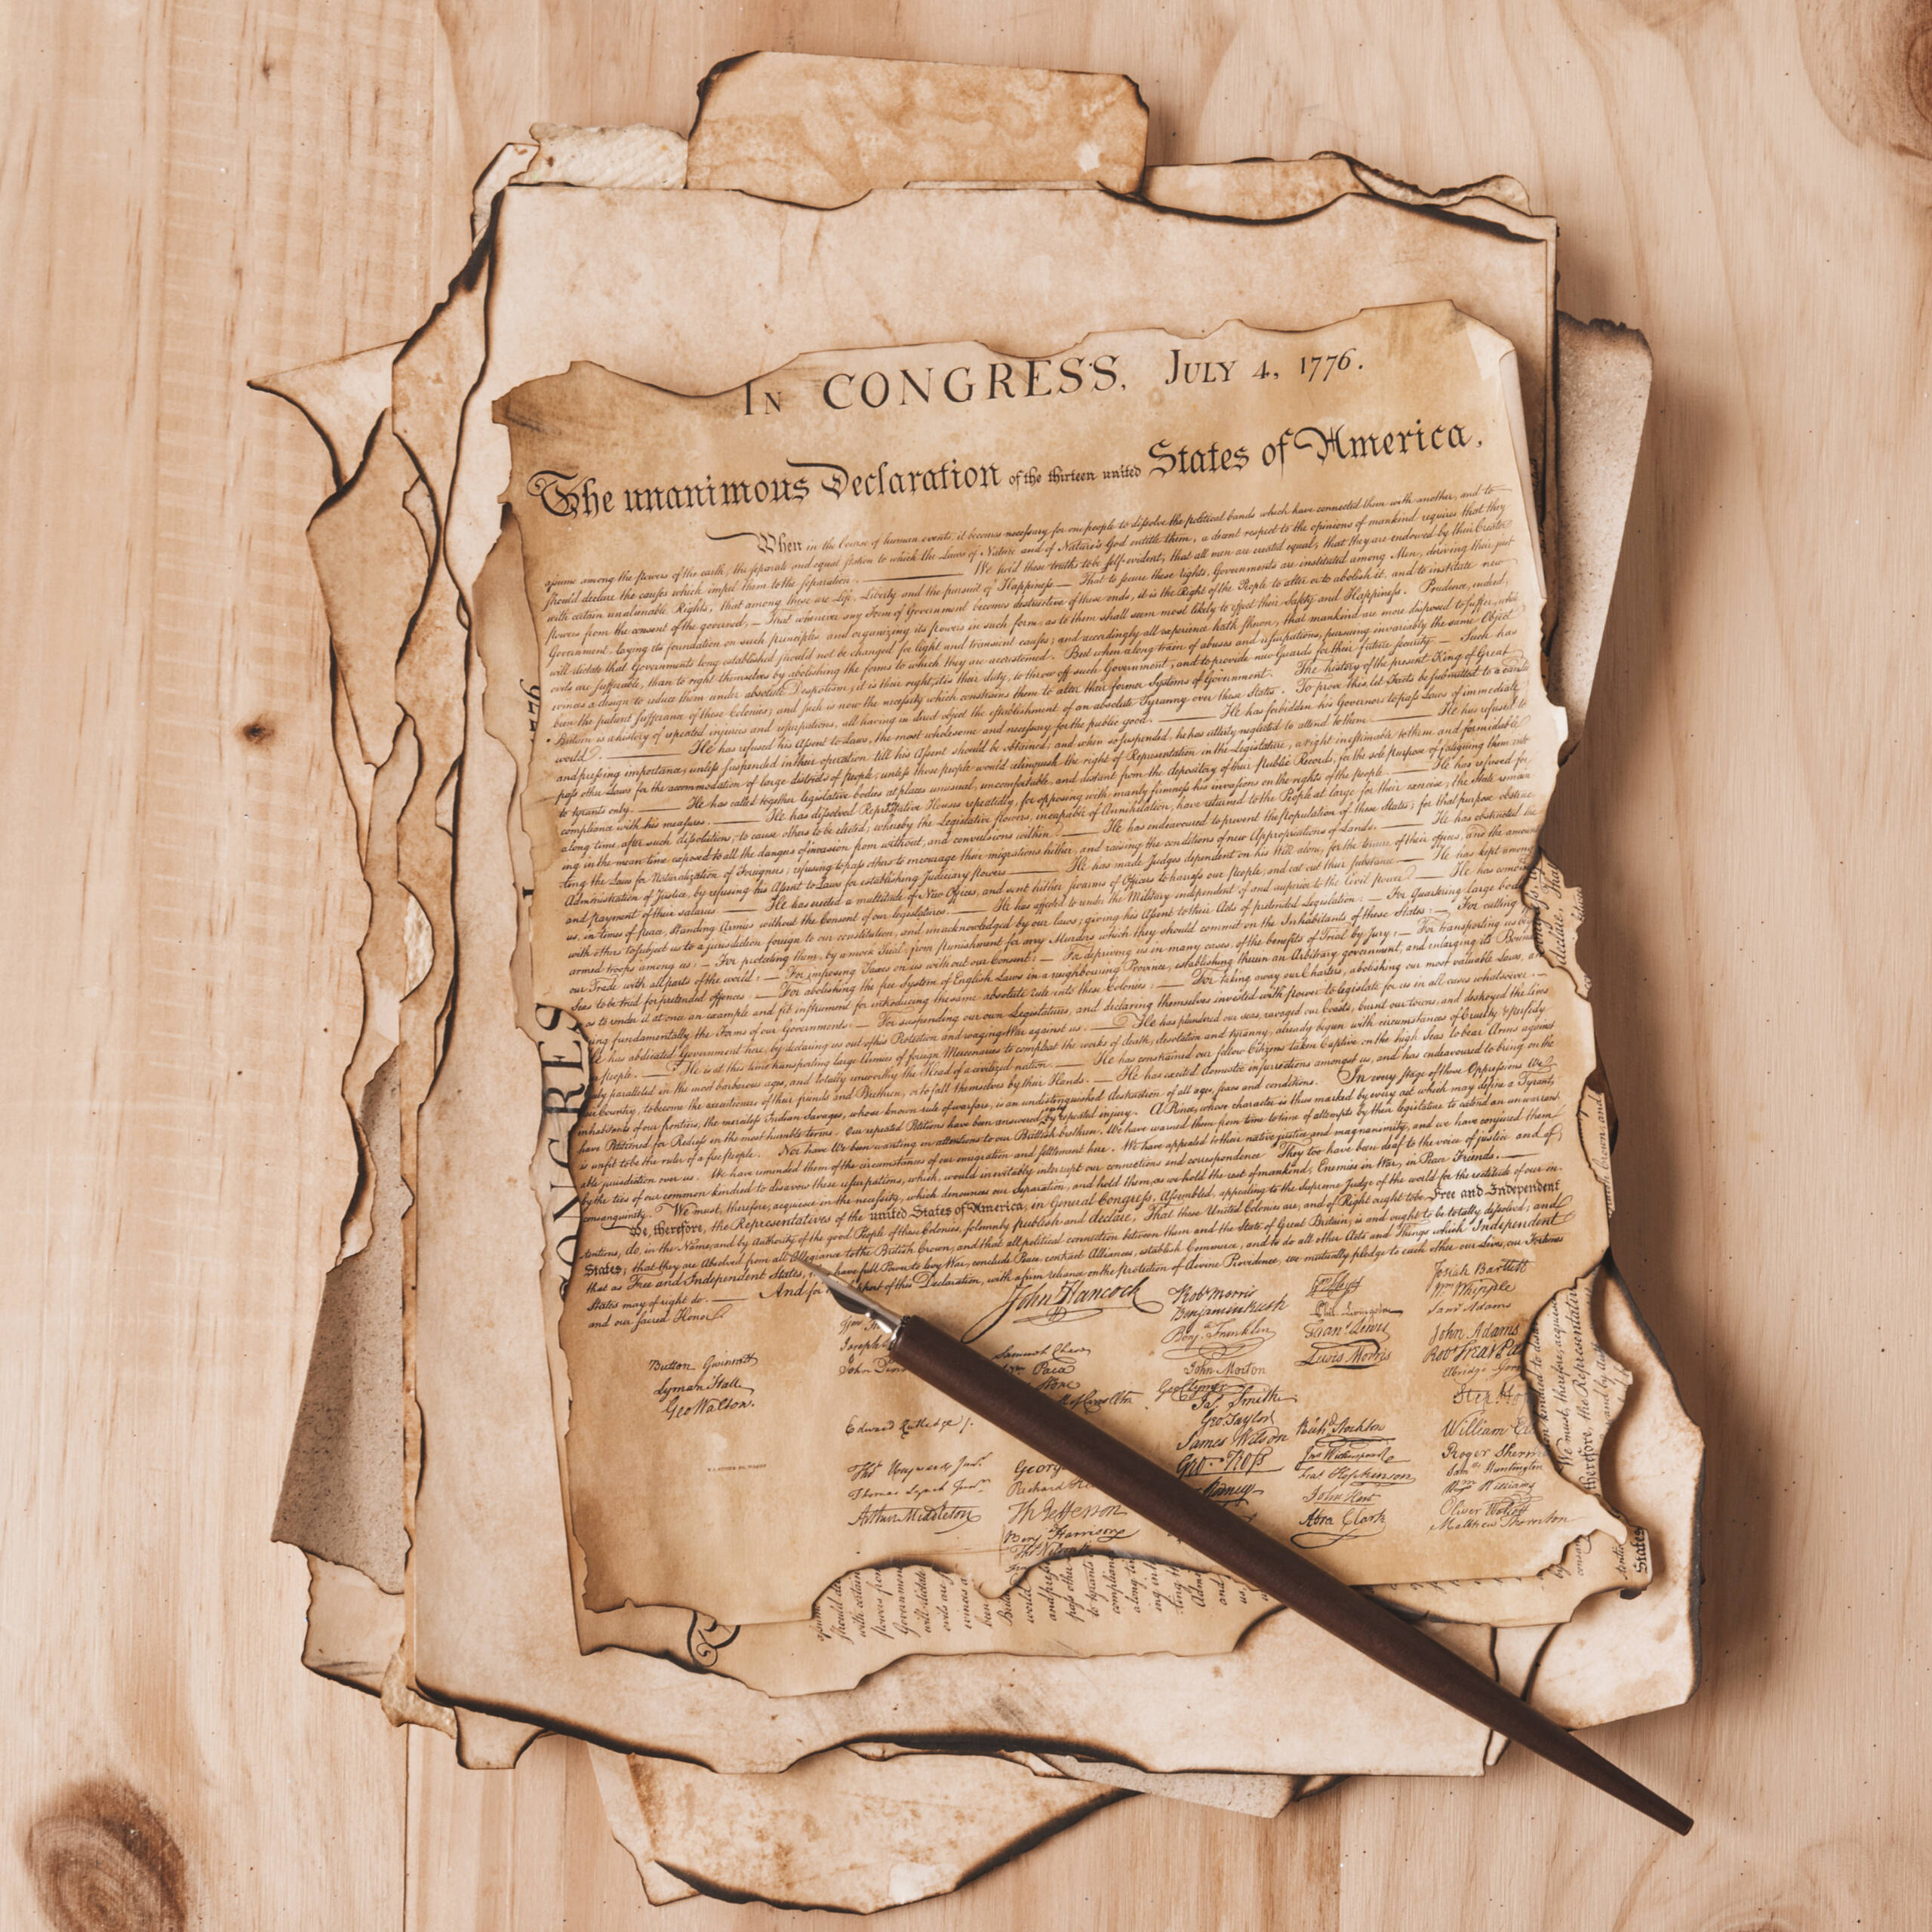 IN CONGRESS, JULY 4, 1776.
The unanimous Declaration of the thirteen united States of America,
When in the Course of human events, it becomes necessary for one people to dissolve the political bands which have connected them with another, and to
assume among the powers of the earth, the separate and equal station to which the Laws of Nature and of Nature's God entitle them, a decent respect to the opinions of mankind requires that they
should declare the causes which impel them to the separation. — We hold these truths to be self-evident, that all men are created equal, that they are endowed by their Creator
with certain unalienable Rights, that among these are Life, Liberty and the pursuit of Happiness — That to secure these rights, Governments are instituted among Men, deriving their just
powers from the consent of the governed, — That whenever any Form of Government becomes destructive of these ends, it is the Right of the People to alter or to abolish it, and to institute new
Government, laying its foundation on such principles, and organizing its powers in such form, as to them shall seem most likely to effect their Safety and Happiness. Prudence, indeed,
will dictate that Governments long established should not be changed for light and transient causes; and accordingly all experience hath shewn, that mankind are more disposed to suffer, while
evils are sufferable, than to right themselves by abolishing the forms to which they are accustomed. But when a long train of abuses and usurpations, pursuing invariably the same Object
evinces a design to reduce them under absolute Despotism, it is their right, it is their duty, to throw off such Government, and to provide new Guards for their future security. — Such has
been the patient sufferance of these Colonies; and such is now the necessity which constrains them to alter their former Systems of Government. The history of the present King of Great
Britain is a history of repeated injuries and usurpations, all having in direct object the establishment of an absolute Tyranny over these States. To prove this, let Facts be submitted to a candid
world. — He has refused his Assent to Laws, the most wholesome and necessary for the public good. — He has forbidden his Governors to pass Laws of immediate
and pressing importance, unless suspended in their operation till his Assent should be obtained; and when so suspended, he has utterly neglected to attend to them. — He has refused to
pass other Laws for the accommodation of large districts of people, unless those people would relinquish the right of Representation in the Legislature, a right inestimable to them and formidable
to tyrants only. — He has called together legislative bodies at places unusual, uncomfortable, and distant from the depository of their Public Records, for the sole purpose of fatiguing them into
compliance with his measures. — He has dissolved Representative Houses repeatedly, for opposing with manly firmness his invasions on the rights of the people. — He has refused for
a long time, after such dissolutions, to cause others to be elected; whereby the Legislative powers, incapable of Annihilation, have returned to the People at large for their exercise; the State remain
ing in the mean time exposed to all the dangers of invasion from without, and convulsions within. — He has endeavoured to prevent the population of these States; for that purpose obstruc
ting the Laws for Naturalization of Foreigners; refusing to pass others to encourage their migrations hither, and raising the conditions of new Appropriations of Lands. — He has obstructed the
Administration of Justice, by refusing his Assent to Laws for establishing Judiciary powers. — He has made Judges dependent on his Will alone, for the tenure of their offices, and the amount
and payment of their salaries. — He has erected a multitude of New Offices, and sent hither swarms of Officers to harrass our people, and eat out their substance. — He has kept among
us, in times of peace, Standing Armies without the Consent of our legislatures. — He has affected to render the Military independent of and superior to the Civil power. — He has combin
with others to subject us to a jurisdiction foreign to our constitution, and unacknowledged by our laws; giving his Assent to their Acts of pretended Legislation: — For Quartering large bod
armed troops among us: — For protecting them, by a mock Trial, from punishment for any Murders which they should commit on the Inhabitants of these States: — For cutting
our Trade with all parts of the world: — For imposing Taxes on us without our Consent: — For depriving us in many cases, of the benefits of Trial by Jury: — For transporting us
Seas to be tried for pretended offences: — For abolishing the free System of English Laws in a neighbouring Province, establishing therein an Arbitrary government, and enlarging its Boun
as to render it at once an example and fit instrument for introducing the same absolute rule into these Colonies: — For taking away our Charters, abolishing our most valuable Laws, an
ing fundamentally the Forms of our Governments: — For suspending our own Legislatures, and declaring themselves invested with power to legislate for us in all cases whatsoever. —
He has abdicated Government here, by declaring us out of his Protection and waging War against us. — He has plundered our seas, ravaged our Coasts, burnt our towns, and destroyed the lives
people. — He is at this time transporting large Armies of foreign Mercenaries to compleat the works of death, desolation and tyranny, already begun with circumstances of Cruelty & perfidy
ly paralleled in the most barbarous ages, and totally unworthy the Head of a civilized nation. — He has constrained our fellow Citizens taken Captive on the high Seas to bear Arms against
their Country, to become the executioners of their friends and Brethren, or to fall themselves by their Hands. — He has excited domestic insurrections amongst us, and has endeavoured to bring on the
inhabitants of our frontiers, the merciless Indian Savages, whose known rule of warfare, is an undistinguished destruction of all ages, sexes and conditions. In every stage of these Oppressions We
have Petitioned for Redress in the most humble terms: Our repeated Petitions have been answered only by repeated injury. A Prince, whose character is thus marked by every act which may define a Tyrant,
is unfit to be the ruler of a free people. Nor have We been wanting in attentions to our Brittish brethren. We have warned them from time to time of attempts by their legislature to extend an unwarrant
able jurisdiction over us. We have reminded them of the circumstances of our emigration and settlement here. We have appealed to their native justice and magnanimity, and we have conjured them
by the ties of our common kindred to disavow these usurpations, which, would inevitably interrupt our connections and correspondence. They too have been deaf to the voice of justice and of
consanguinity. We must, therefore, acquiesce in the necessity, which denounces our Separation, and hold them, as we hold the rest of mankind, Enemies in War, in Peace Friends. —
We, therefore, the Representatives of the united States of America, in General Congress, Assembled, appealing to the Supreme Judge of the world for the rectitude of our in-
tentions, do, in the Name, and by Authority of the good People of these Colonies, solemnly publish and declare, That these United Colonies are, and of Right ought to be Free and Independent
States; that they are Absolved from all Allegiance to the British Crown, and that all political connection between them and the State of Great Britain, is and ought to be totally dissolved; and
that as Free and Independent States, have full Power to levy War, conclude Peace, contract Alliances, establish Commerce, and to do all other Acts and Things which Independent
States may of right do. — And for port of this Declaration, with a firm reliance on the protection of divine Providence, we mutually pledge to each other our Lives, our Fortunes
and our sacred Honor.
Button Gwinnett
Lyman Hall
Geo Walton.
Joseph
John
Edward Rutledge /.
Thos Heyward Junr.
Thomas Lynch Junr.
Arthur Middleton
John Hancock
Samuel Chase
Paca
Stone
George
Richard
Th Jefferson
Benj Harrison
Robt Morris
Benjamin Rush
Benj. Franklin
John Morton
Geo Clymer
Jas. Smith
Geo. Taylor
James Wilson
Geo. Ross
Rodney
Phil. Livingston
Frans. Lewis
Lewis Morris
Richd. Stockton
Jno Witherspoon
Fras. Hopkinson
John Hart
Abra Clark
Josiah Bartlett
Wm Whipple
Saml Adams
John Adams
Robt Treat Pa
Step. Ho
William El
Roger Sherm
Saml Huntington
Wm Williams
Oliver Wolcott
Matthew Thornton
1776
CONGRES
declare, That
British Crown, and
We must, therefore, acquiesce
therefore, the Representativ
States
should de
with certain
powers from
Government
will dictate
evils are
evinces a
been
Brit
world
and press
pass other
to tyrants
complianc
along tim
ing in th
ting th
Adm
and
us,